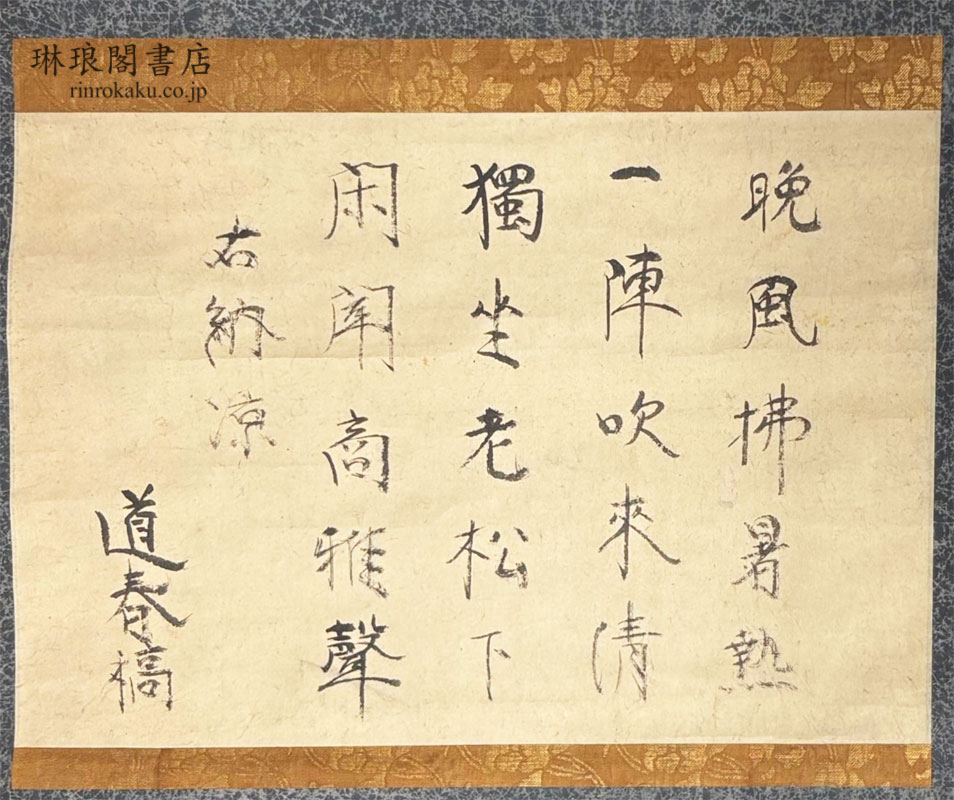 琳琅閣書店
rinrokaku.co.jp
晩風拂暑熱
一陣吹來清
獨坐老松下
閑聞商雅聲
右納凉
道春稿